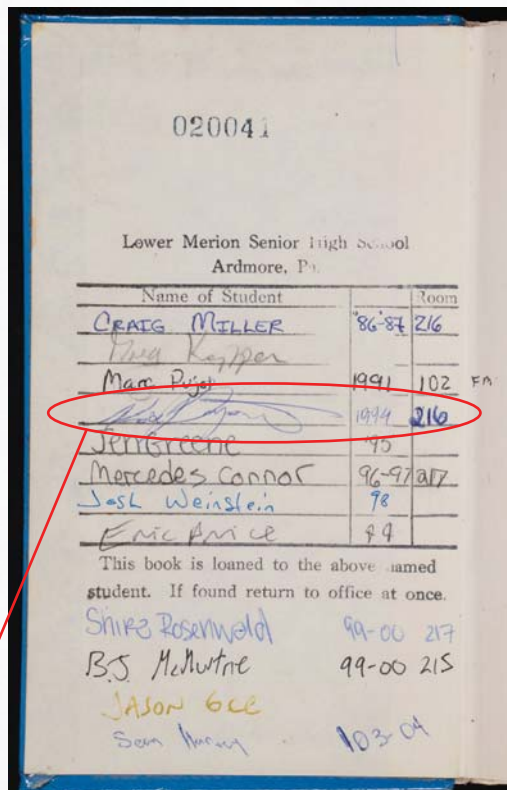 020041
Lower Merion Senior High School
Ardmore, Pa.
Name of Student Room
CRAIG MILLER '86-87 216
Marc Pujol 1991 102 FA
1994 216
Jen Greene '95
Mercedes Connor 96-97 217
Josh Weinstein 98
Eric Price 99
This book is loaned to the above named
student. If found return to office at once.
Shira Rosenwald 99-00 217
B.J. 99-00 215
JASON
Sean 03-04